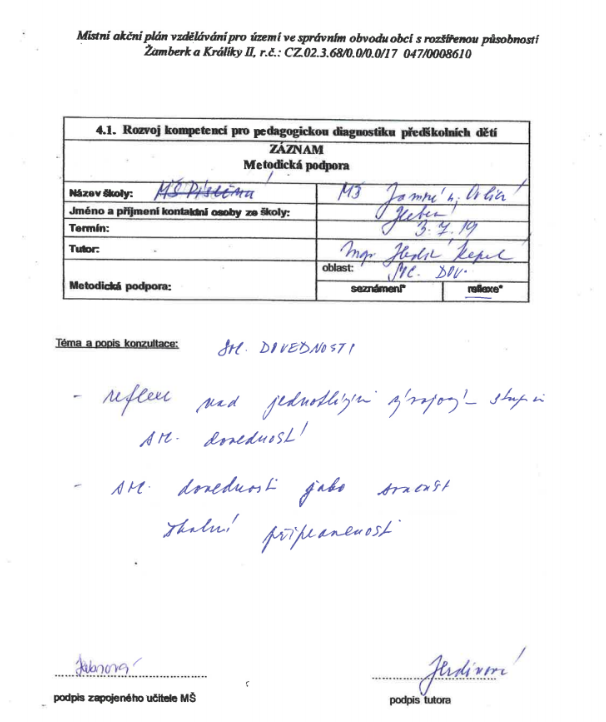 Místní akční plán vzdělávání pro území ve správním obvodu obcí s rozšířenou působností
Žamberk a Králíky II, r.č.: CZ.02.3.68/0.0/0.0/17_047/0008610
4.1. Rozvoj kompetencí pro pedagogickou diagnostiku předškolních dětí
ZÁZNAM
Metodická podpora
Název školy: MŠ Písečná MŠ Jamné n. Orlicí
Jméno a příjmení kontaktní osoby ze školy:
Termín: 3. 7. 19
Tutor: Mgr.
oblast: SM. DOV.
Metodická podpora: seznámení* reflexe*
Téma a popis konzultace: SM. DOVEDNOSTI
- reflexe nad jednotlivými vývojový stupni
SM. dovedností
- SM. dovednosti jako součást
školní připravenosti
podpis zapojeného učitele MŠ
podpis tutora